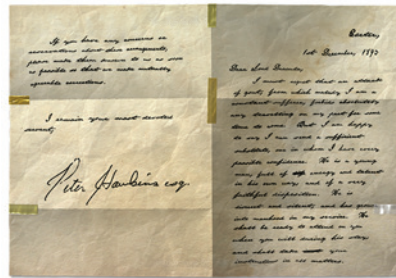 If you have any concerns or
reservations about these arrangements,
please make them known to us as soon
as possible so that we make mutually
agreeable corrections.
I remain your most devoted
servant,
Peter Hawkins esq.
1st December, 1890
Dear
I must regret that an attack
of gout, from which malady I am a
constant sufferer, forbids absolutely
any travelling on my part for some
time to come. But I am happy
to say I can send a sufficient
substitute, one in whom I have every
possible confidence. He is a young
man, full of energy and talent
in his own way, and of a very
faithful disposition. He is
discreet and silent, and has grown
into manhood in my service. He
shall be ready to attend on you
when you will during his stay,
and shall take your
instructions in all matters.